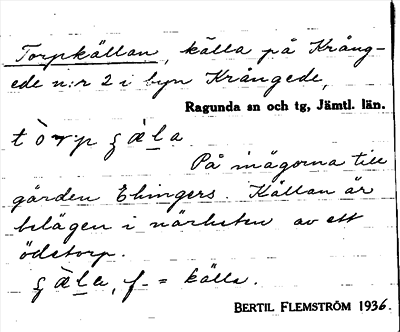 Torpkällan, källa på Krång-
ede n:r 2 i byn Krångede,
Ragunda sn och tg, Jämtl. län.
tòrp ʂàla
På inägorna till
gården Ehingers. Källan är
belägen i närheten av ett
ödetorp.
ʂàla, f. = källa.
BERTIL FLEMSTRÖM 1936.